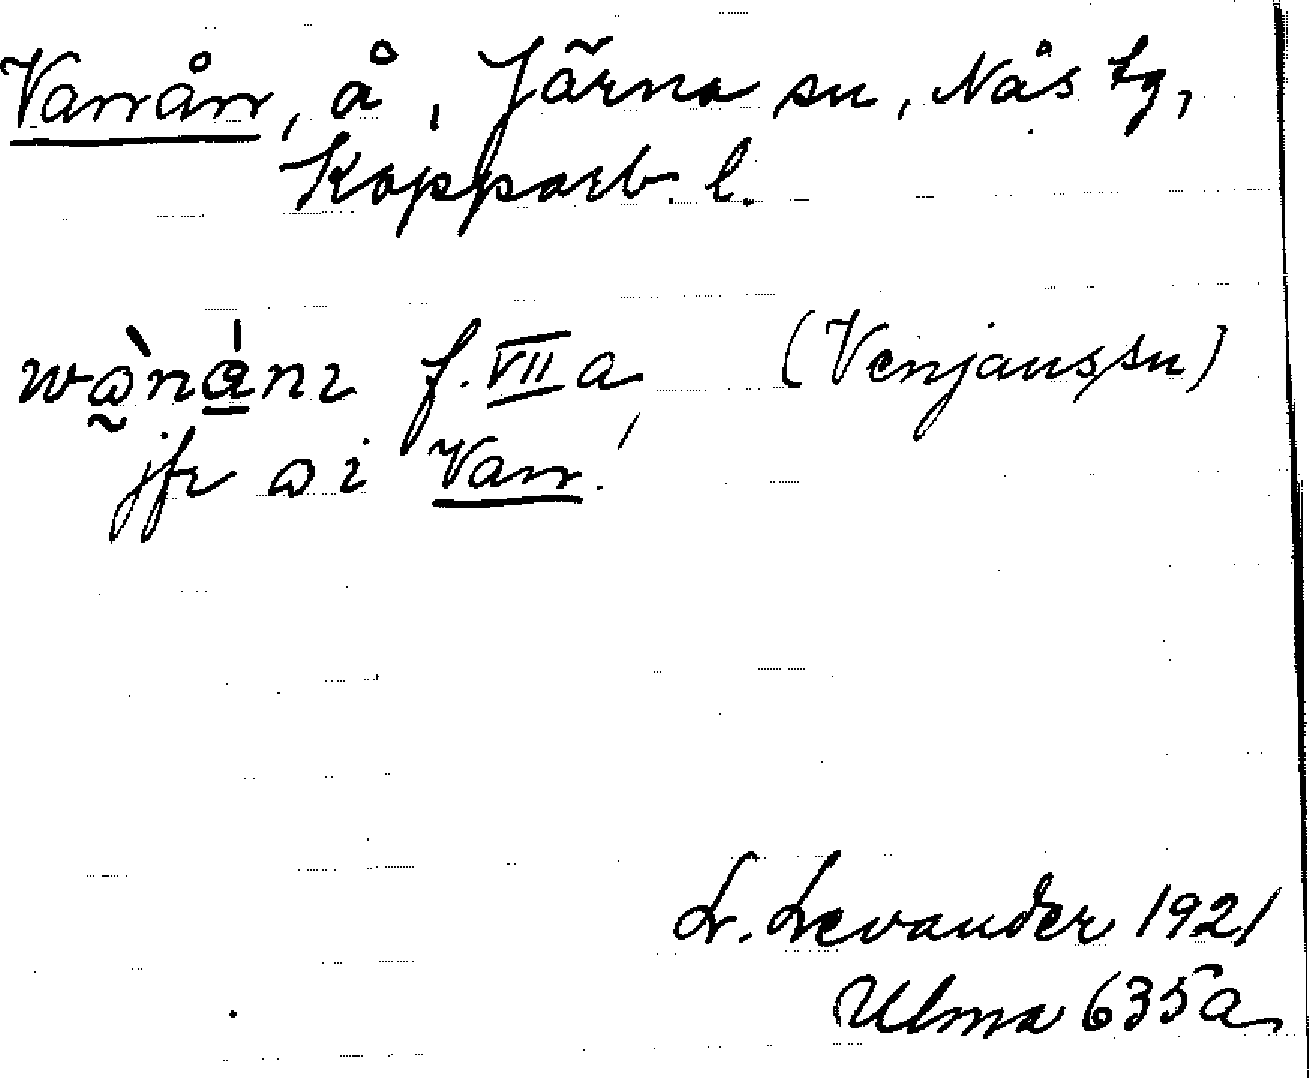 Vanån, å, Järna sn, Nås tg,
Kopparb. l.
wànánı f. VII a (Venjanssn)
jfr a i Van!
L. Levander 1921
Ulma 635a